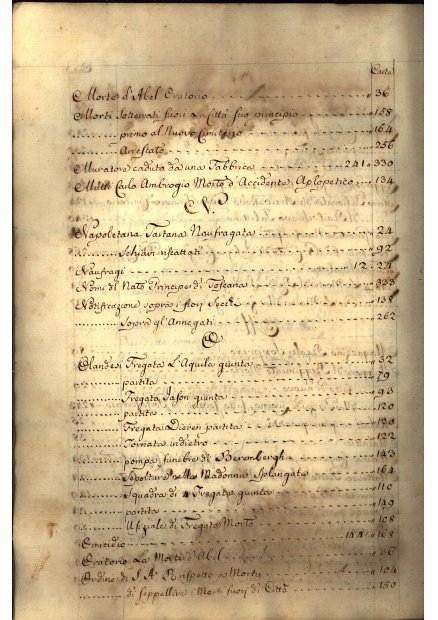 Carte
Morte d'Abel Oratorio " 36
Morti Sotterrati fuori La Città suo principio " 158
primo al Nuovo Cimiterio " 164
Arrestato 256
Muratore caduto da una Fabbrica 241 " 330
Carlo Ambrogio Morto d'Accidente Aplopetico " 134
N.
Napoletana Tartana Naufragata " 24
Schiavi riscattati " 92
Naufragi 12 " 24
Nome di Nato Principe di Toscana " 333
Notificazione sopra i fiori Secchi " 138
Sopra gl'Annegati " 262
O
Olandesi Fregata L'Aquila giunta " 32
partita " 79
Fregata Jason giunta " 93
partita " 120
Fregata Dieren partita " 120
Tornata indietro " 122
pompa funebre di Berembergh " 143
Sepolture nella Madonna " 164
Squadra di 4 Fregate giunta " 110
partita " 149
Ufiziale di Fregata Morto " 108
Omicidio 144 " 168
Oratorio La Morte d'Abel " 36
Ordine di S. A. R. rispetto a Morti " 104
di seppellire i Morti fuori di Città " 150